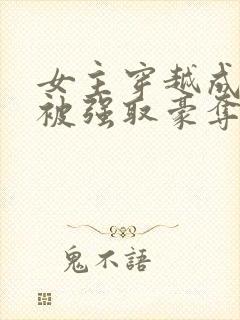 女主穿越成
被强取豪夺
鬼不語